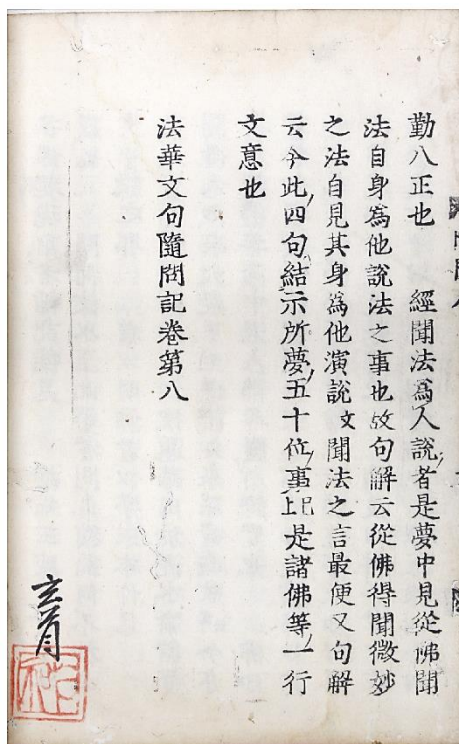 勤八正也　經聞法爲人說者是夢中見從佛聞
法自身爲他說法之事也故句解云從佛得聞微妙
之法自見其身爲他演說文聞法之言最便又句解
云今此四句結示所夢五十位事是諸佛等一行
文意也
法華文句隨問記卷第八